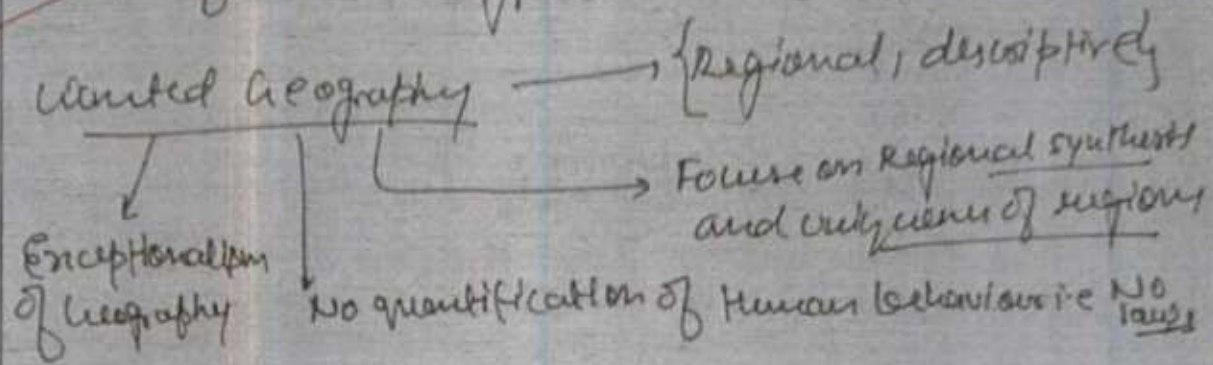 wanted Geography → {Regional, descriptive}
→ Focus on Regional synthesis
and uniqueness of regions
Exceptionalism
of Geography
No quantification of Human behaviour i.e No
laws